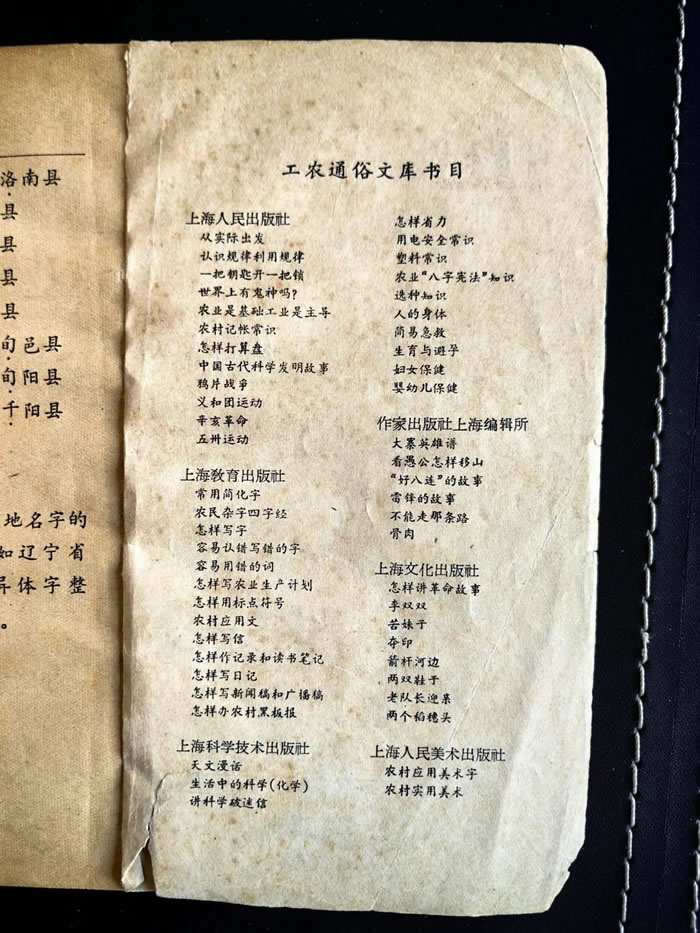 洛南县
县
县
县
县
旬邑县
旬阳县
千阳县
地名字的
如辽宁省
异体字整
。
工农通俗文库书目
上海人民出版社
从实际出发
认识规律利用规律
一把钥匙开一把锁
世界上有鬼神吗?
农业是基础工业是主导
农村记帐常识
怎样打算盘
中国古代科学发明故事
鸦片战争
义和团运动
辛亥革命
五卅运动
上海教育出版社
常用简化字
农民杂字四字经
怎样写字
容易认错写错的字
容易用错的词
怎样写农业生产计划
怎样用标点符号
农村应用文
怎样写信
怎样作记录和读书笔记
怎样写日记
怎样写新闻稿和广播稿
怎样办农村黑板报
上海科学技术出版社
天文漫话
生活中的科学(化学)
讲科学破迷信
怎样省力
用电安全常识
塑料常识
农业“八字宪法”知识
选种知识
人的身体
简易急救
生育与避孕
妇女保健
婴幼儿保健
作家出版社上海编辑所
大寨英雄谱
看愚公怎样移山
“好八连”的故事
雷锋的故事
不能走那条路
骨肉
上海文化出版社
怎样讲革命故事
李双双
苦妹子
夺印
箭杆河边
两双鞋子
老队长迎亲
两个稻穗头
上海人民美术出版社
农村应用美术字
农村实用美术